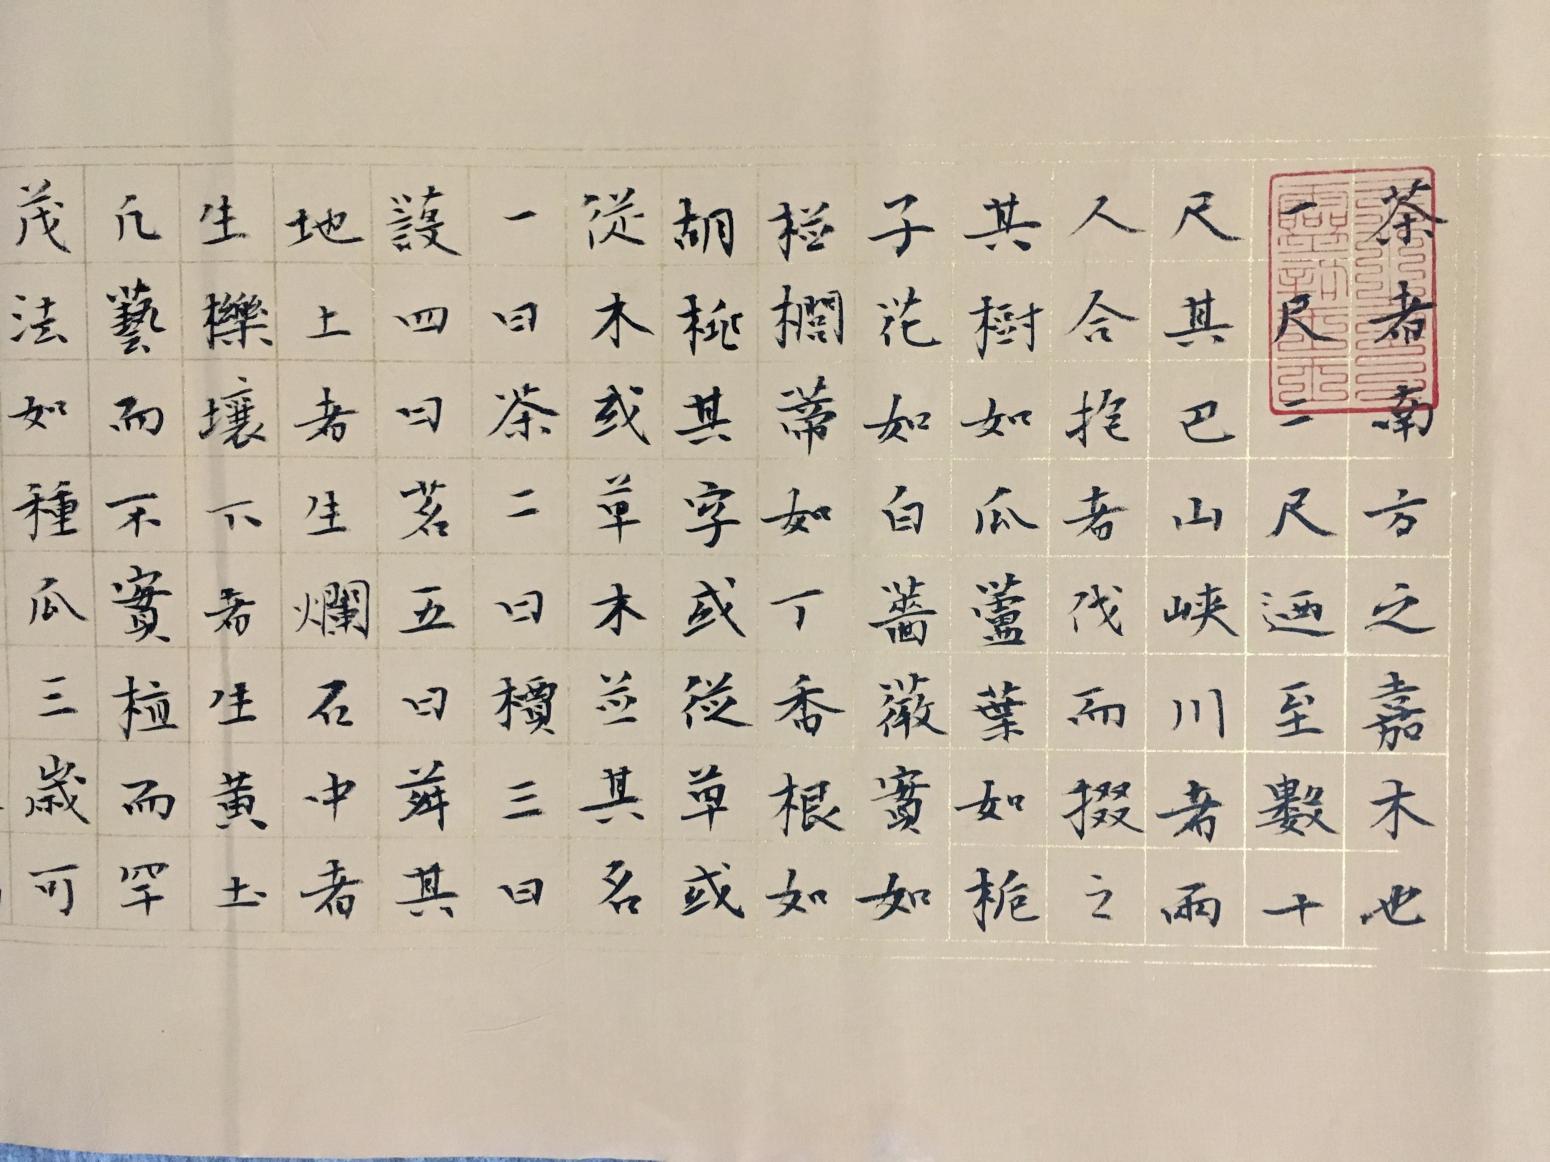 茶者南方之嘉木也
一尺二尺迺至數十
尺其巴山峡川者兩
人合抱者伐而掇之
其樹如瓜蘆葉如梔
子花如白薔薇實如
椪櫚蒂如丁香根如
胡桃其字或從草或
從木或草木並其名
一曰茶二曰檟三曰
蔎四曰茗五曰荈其
地上者生爛石中者
生櫟壤下者生黄土
凡藝而不實植而罕
茂法如種瓜三歲可